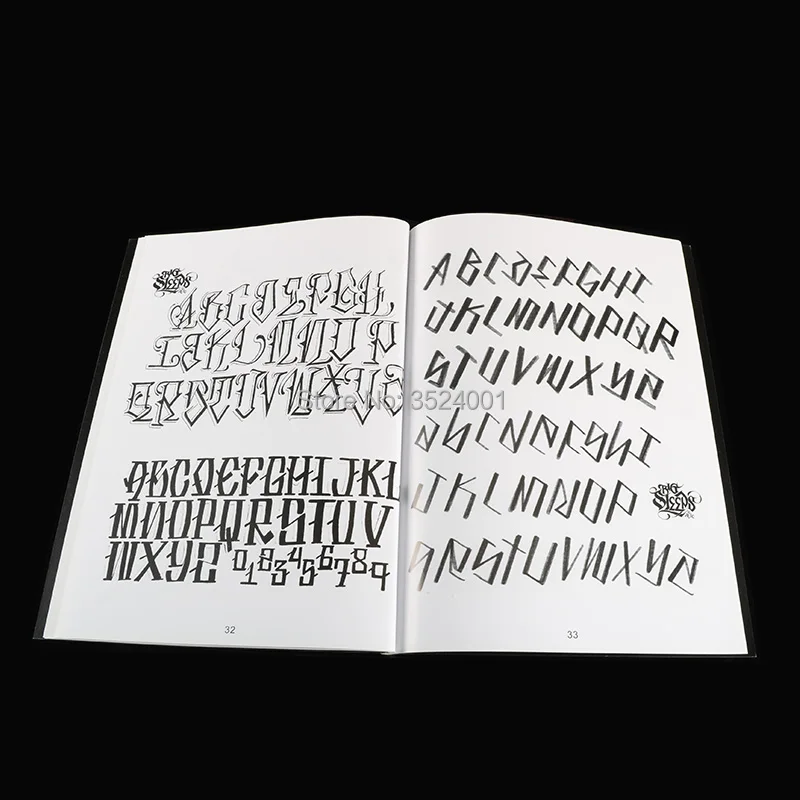 BIG
SLEEPS
ABCDEFGH
IJKLMNOP
QRSTUVWXYZ
ABCDEFGHIJKL
MNOPQRSTUV
WXYZ 0123456789
32
ABCDEFGHI
JKLMNOPQR
STUVWXYZ
abcdefghi
JKLMNOP
BIG
SLEEPS
qRSTUVWXYZ
33
Store No: 3524001